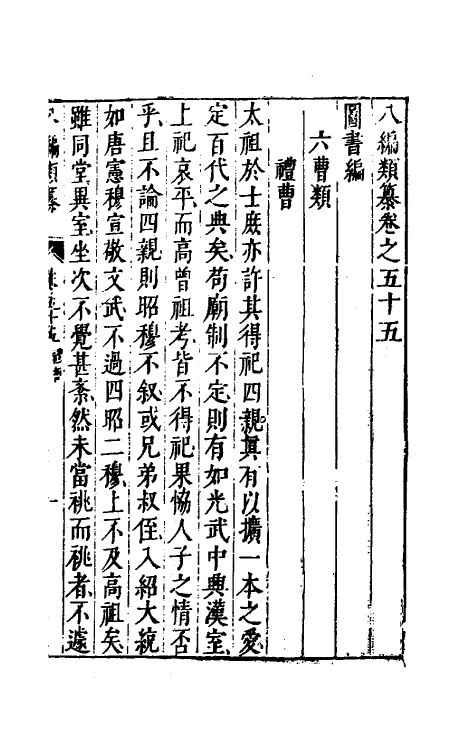 八編類纂卷之五十五
圖書編
六曹類
禮曹
太祖於士庶亦許其得祀四親真有以擴一本之愛
定百代之典矣苟廟制不定則有如光武中興漢室
上祀哀平而高曾祖考皆不得祀果恊人子之情否
乎且不論四親則昭穆不叙或兄弟叔侄入紹大統
如唐憲穆宣敬文武不過四昭二穆上不及高祖矣
雖同堂異室坐次不覺甚紊然未當祧而祧者不遠
編類纂